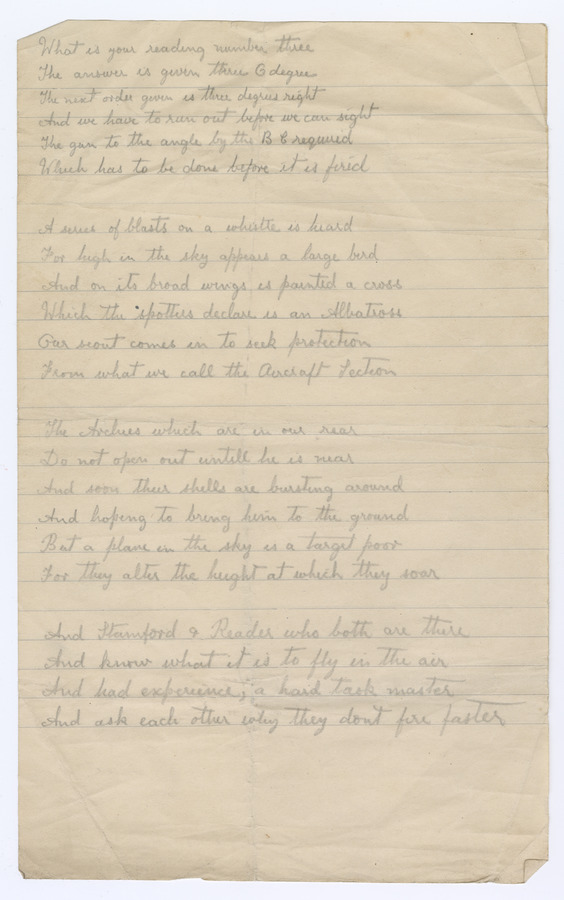 What is your reading number three
The answer is given three 0 degree
The next order given is three degrees right
And we have to run out before we can sight
The gun to the angle by the B C required
Which has to be done before it is fired
A series of blasts on a whistle is heard
For high in the sky appears a large bird
And on its broad wings is painted a cross
Which the spotters declare is an Albatross
Our scout comes in to seek protection
From what we call the Aircraft Section
The Archies which are in our rear
Do not open out untill he is near
And soon their shells are bursting around
And hopeing to bring him to the ground
But a plane in the sky is a target poor
For they alter the height at which they soar
And Stamford & Reader who both are there
And know what it is to fly in the air
And had experience, a hard task master
And ask each other why they dont fire faster